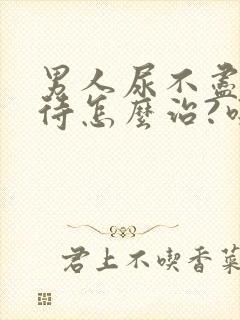 男人尿不盡
待怎麼治?
君上不喫香菜